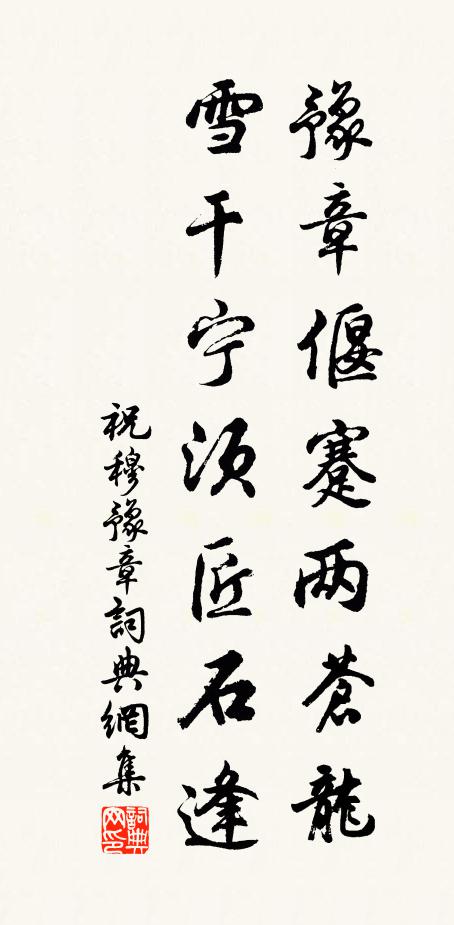 豫章偃蹇两苍龍
雪干宁须匠石逢
祝穆豫章詞典網集
詞典网印